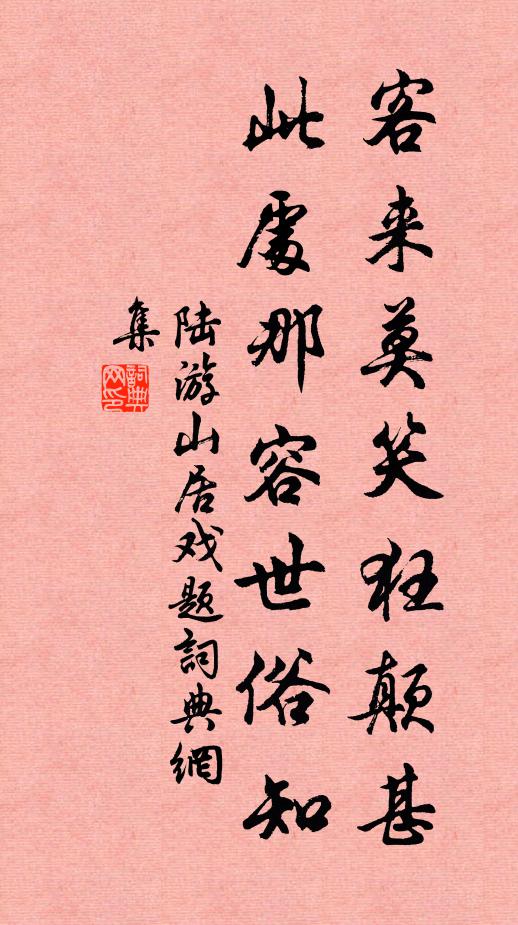 客来莫笑狂颠甚
此處那容世俗知
陆游山居戏题詞典網
集
詞典
网印